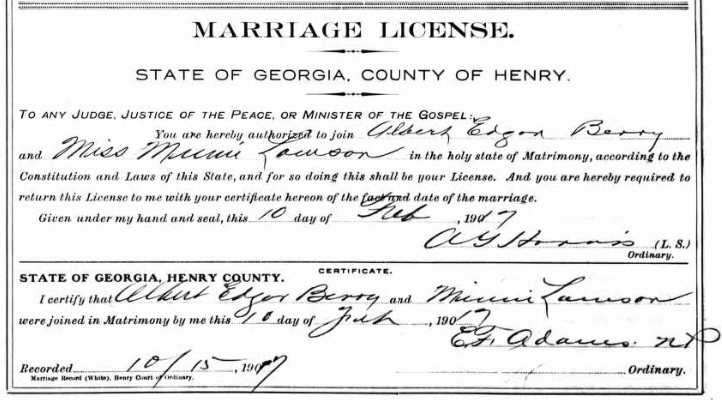 MARRIAGE LICENSE.
STATE OF GEORGIA, COUNTY OF HENRY.
TO ANY JUDGE, JUSTICE OF THE PEACE, OR MINISTER OF THE GOSPEL:
You are hereby authorized to join Albert Edgar Berry
and Miss Minnie Lawson in the holy state of Matrimony, according to the
Constitution and Laws of this State, and for so doing this shall be your License. And you are hereby required to
return this License to me with your certificate hereon of the fact and date of the marriage.
Given under my hand and seal, this 10 day of Feb, 1917
A G Harris (L. S.)
Ordinary.
CERTIFICATE.
STATE OF GEORGIA, HENRY COUNTY.
I certify that Albert Edgar Berry and Minnie Lawson
were joined in Matrimony by me this 10 day of Feb, 1917
E.F. Adams. N P
Recorded 10/15 1917 Ordinary.
Marriage Record (White), Henry Court of Ordinary.